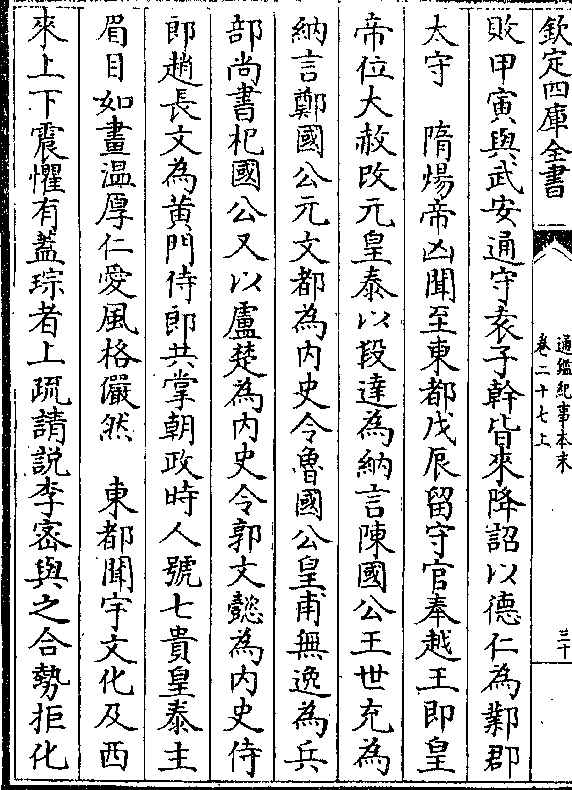 欽定四庫全書
通鑑紀事本末
卷二十七上
三十
敗甲寅與武安通守袁子幹皆來降詔以德仁為鄴郡
太守　隋煬帝凶聞至東都戊辰留守官奉越王即皇
帝位大赦改元皇泰以段達為納言陳國公王世充為
納言鄭國公元文都為内史令魯國公皇甫無逸為兵
部尚書杞國公又以盧楚為内史令郭文懿為内史侍
郎趙長文為黄門侍郎共掌朝政時人號七貴皇泰主
眉目如畫温厚仁愛風格儼然　東都聞宇文化及西
來上下震懼有蓋琮者上疏請説李宻與之合勢拒化